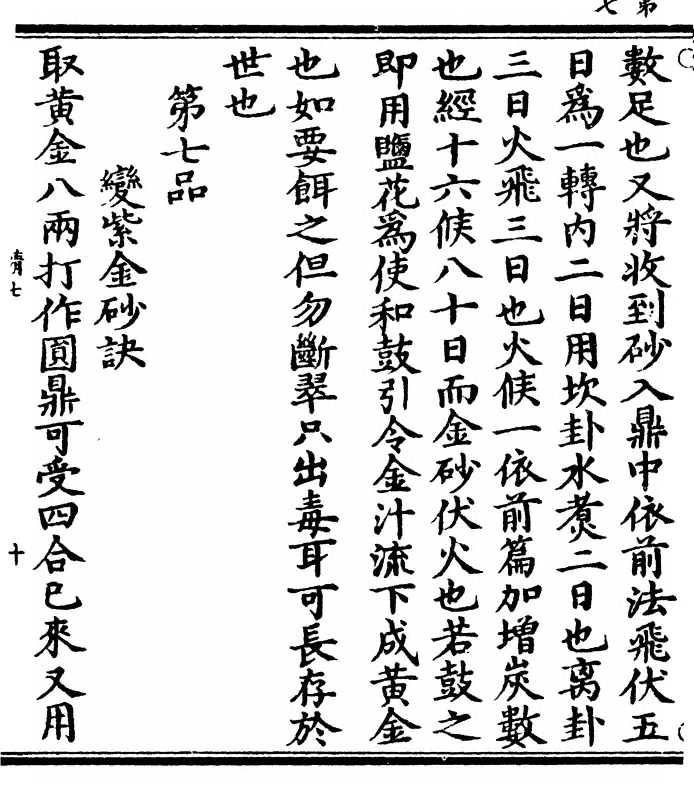 第
七
數足也又將收到砂入鼎中依前法飛伏五
日爲一轉内二日用坎卦水煮二日也离卦
三日火飛三日也火候一依前篇加增炭數
也經十六候八十日而金砂伏火也若鼓之
即用鹽花爲使和鼓引令金汁流下成黄金
也如要餌之但勿斷翠只出毒耳可長存於
世也
第七品
變紫金砂訣
取黄金八兩打作圓鼎可受四合已來又用
膏七
十